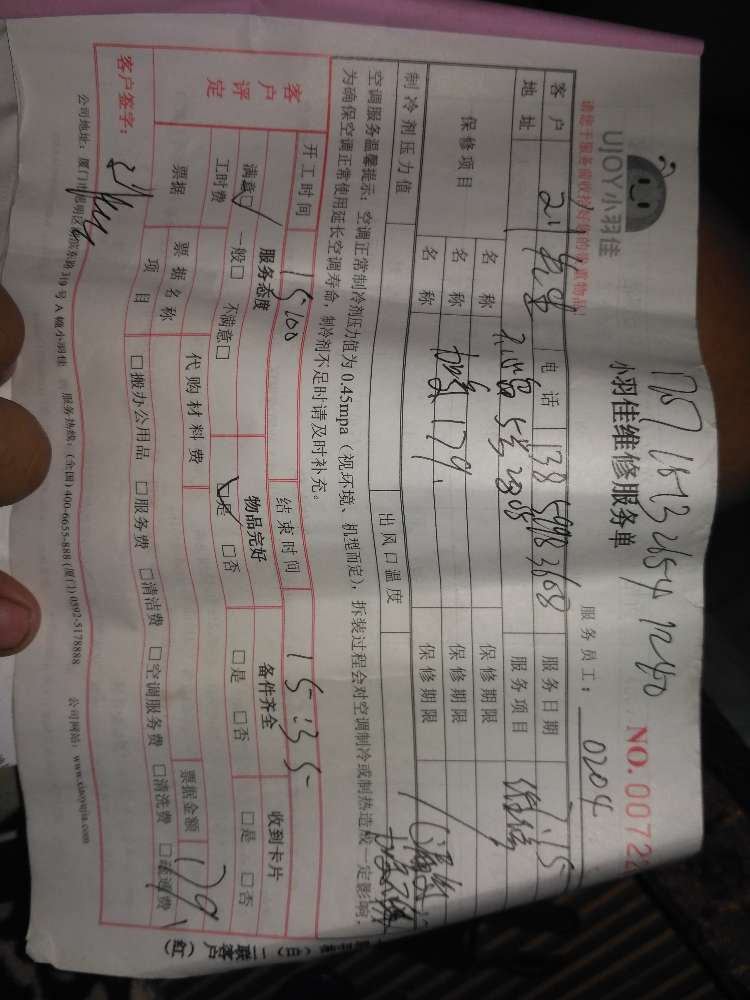 UJOY小羽佳
小羽佳维修服务单
NO.0072
请您于服务前收拾好您的贵重物品!
服务员工: 0204
客户 电话 服务日期 7.15
地址 服务项目 维修
保修项目 名称 保修期限
名称 179. 保修期限
制冷剂压力值 名称 出风口温度 保修期限
空调服务温馨提示:空调正常制冷剂压力值为 0.45mpa(视环境、机型而定),拆装过程会对空调制冷或制热造成一定影响,
为确保空调正常使用延长空调寿命,制冷剂不足时请及时补充。
开工时间 15:00 结束时间 15:35
客户评定 服务态度 物品完好 备件齐全 收到卡片
满意□ 一般□ 不满意□ □是 □否 □是 □否 □是 □否
工时费 代购材料费 票据金额 179
票据 票据名称
项目 □搬办公用品 □服务费 □清洁费 □空调服务费 □清洗费 □维修费
客户签字:
公司地址:厦门市思明区 滨东路 319 号 A 幢小羽佳 服务热线:(全国)400-6655-888 (厦门) 0592-5178888 公司网站:www.xiaoyujia.com
(白) 二联客户(红)